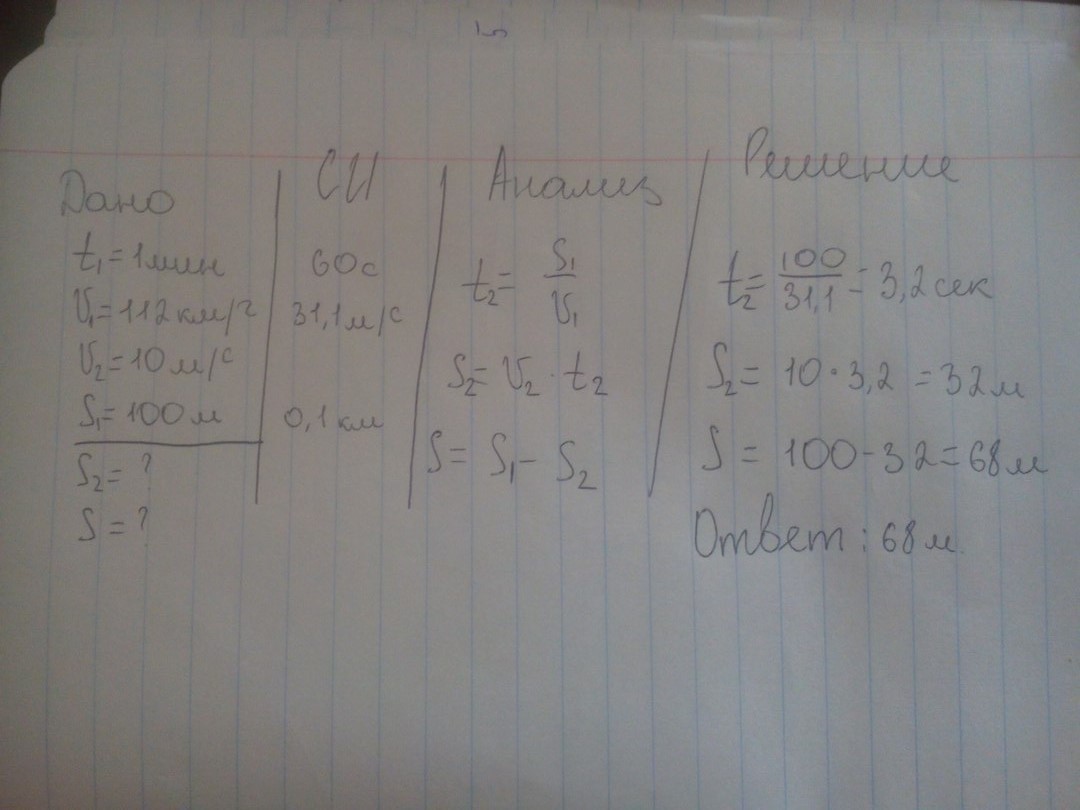 Дано
t₁=1мин
V₁=112км/г
V₂=10м/с
S₁=100м
S₂=?
S=?
СИ
60с
31,1м/с
0,1км
Анализ
t₂= S₁/V₁
S₂= V₂ · t₂
S= S₁- S₂
Решение
t₂= 100/31,1 = 3,2сек
S₂= 10·3,2 =32м
S = 100-32=68м
Ответ: 68м.